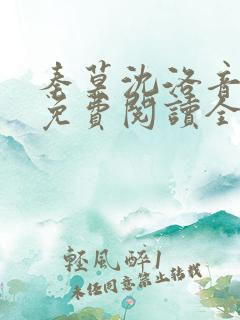 秦墓沈洛音
免費閱讀全
輕風醉1
未經同意禁止轉載